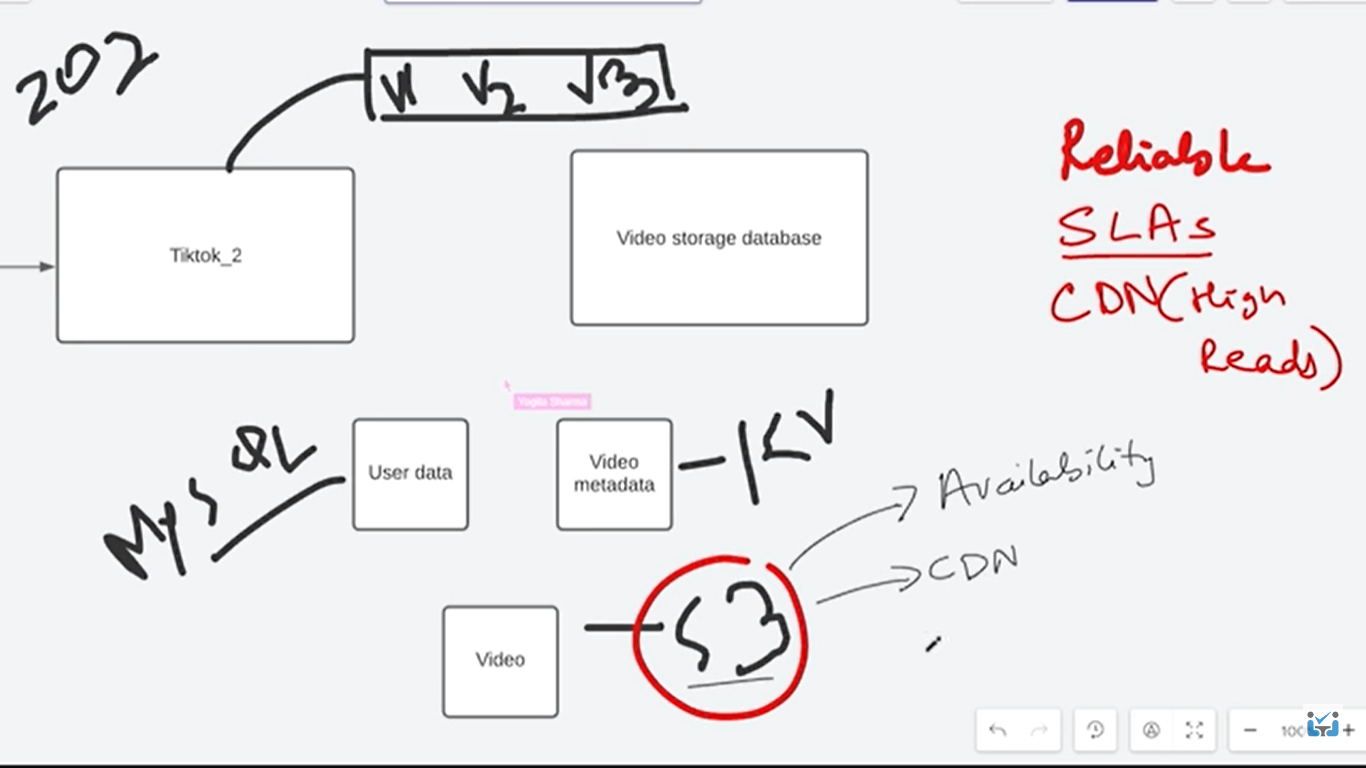 202
V1 V2 V3
Tiktok_2
Video storage database
Reliable
SLAs
CDN (High
Reads)
Yogita Sharma
MySQL
User data
Video
metadata
KV
Availability
CDN
Video
S3